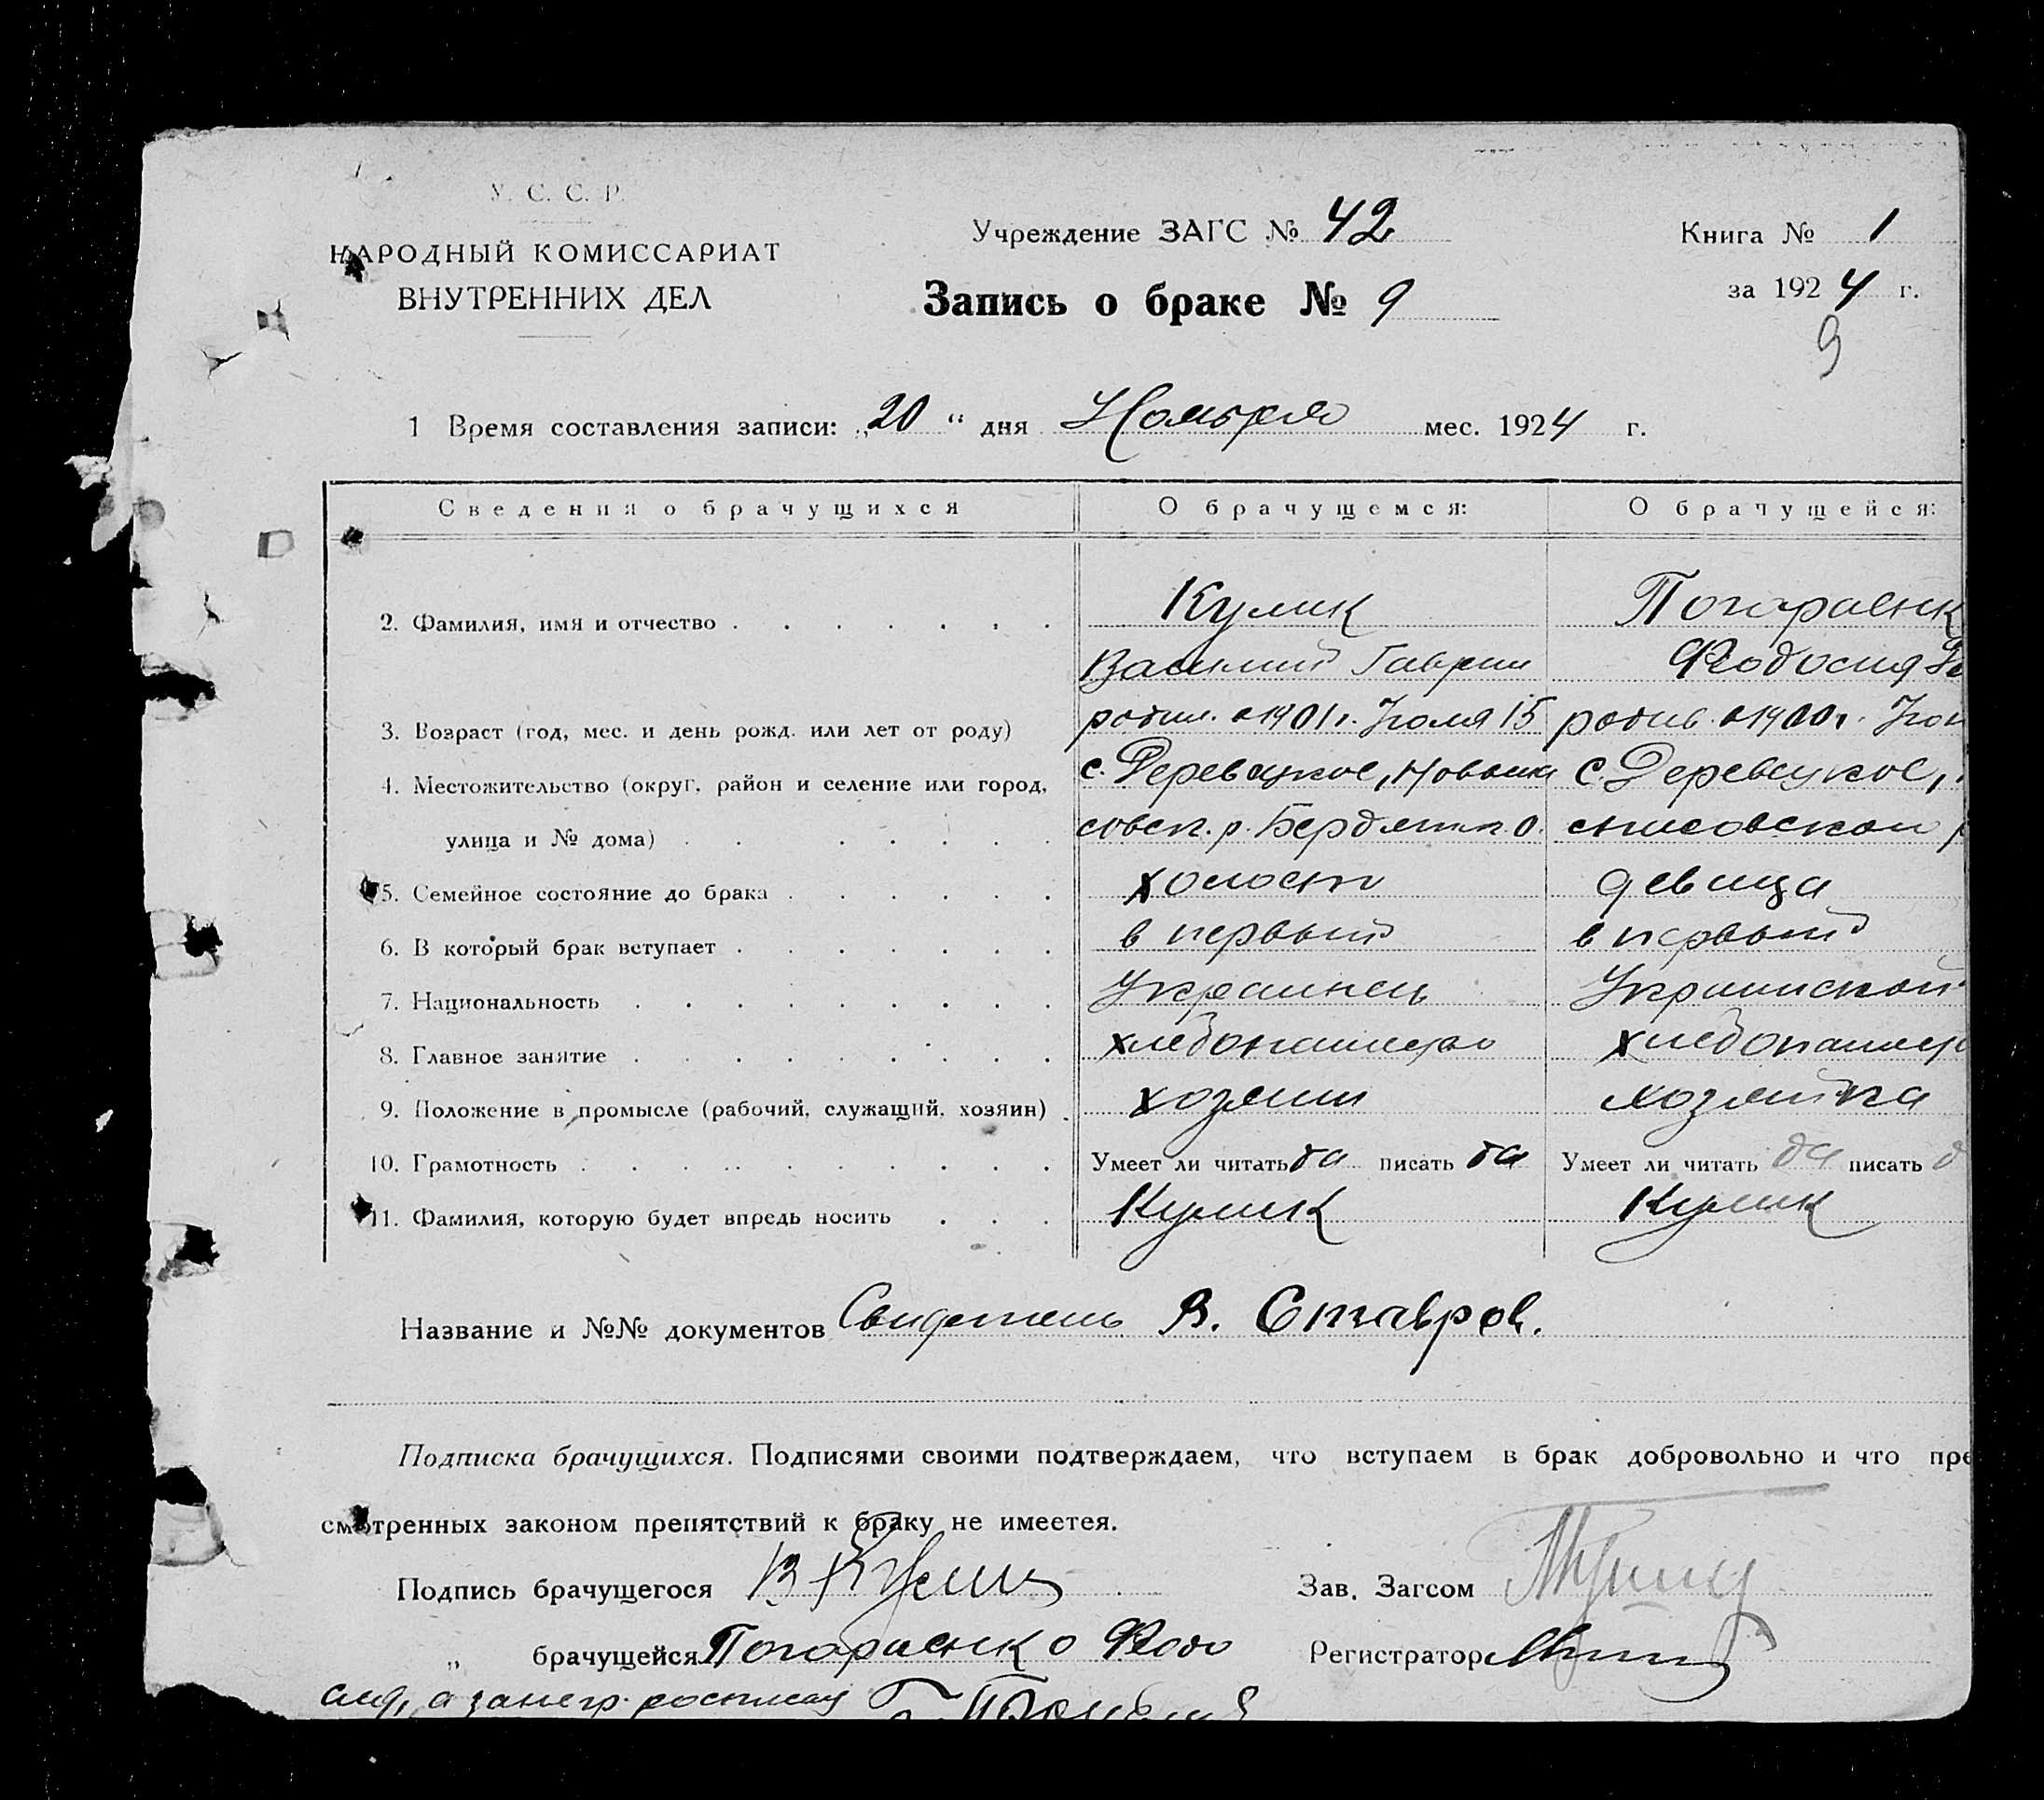 У. С. С. Р.
НАРОДНЫЙ КОМИССАРИАТ
ВНУТРЕННИХ ДЕЛ
Учреждение ЗАГС № 42
Запись о браке № 9
Книга № 1
за 1924 г.
9
1 Время составления записи: „20“ дня Ноября мес. 1924 г.
Сведения о брачущихся О брачущемся: О брачущейся:
2. Фамилия, имя и отчество Кулик Погораенк
Василий Гаврии Феодосия
3. Возраст (год, мес. и день рожд. или лет от роду) родил. в 1901 г. Июля 15 родив. в 1900 г. Июн
4. Местожительство (округ, район и селение или город, с. Деревецкое, Новоспа с. Деревецкое,
улица и № дома) совск. р. Бердянск. о. спасовской р
5. Семейное состояние до брака холост девица
6. В который брак вступает в первый в первый
7. Национальность Украинец Украинской
8. Главное занятие хлебопашество хлебопашест
9. Положение в промысле (рабочий, служащий, хозяин) хозяин хозяйка
10. Грамотность Умеет ли читать да писать да Умеет ли читать да писать д
11. Фамилия, которую будет впредь носить Кулик Кулик
Название и №№ документов Свидетель В. Ставров.
Подписка брачущихся. Подписями своими подтверждаем, что вступаем в брак добровольно и что пре
смотренных законом препятствий к браку не имеетея.
Подпись брачущегося В Кулик Зав. Загсом
„ брачущейся Погораенко Феодо Регистратор
сия, а за негр. росписал